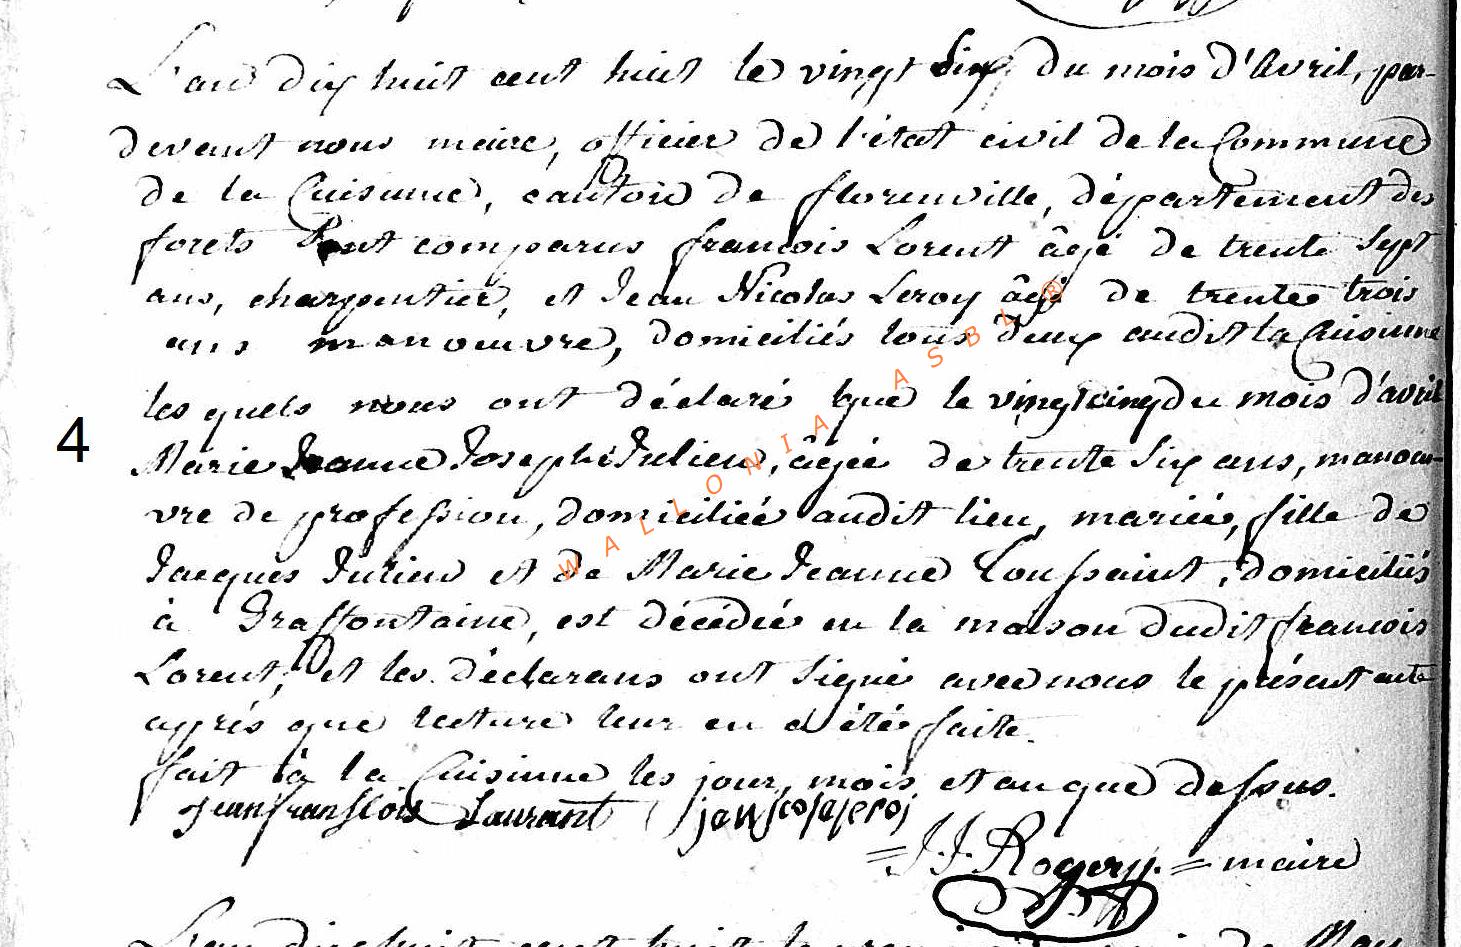 L'an dix huit cent huit le vingt six du mois d'Avril, par-
devant nous maire, officier de l'état civil de la Commune
de la Cuisinne, canton de florenville, département des
forets sont comparus francois Lorent âgé de trente sept
ans, charpentier, et Jean Nicolas Leroy âgé de trente trois
ans manoeuvre, domiciliés tous deux audit la Cuisinne
les quels nous ont déclaré que le vingt cinq du mois d'avril
4
Marie Jeanne Josephe Julien, âgée de trente six ans, manoeu-
vre de profession, domiciliée audit lieu, mariée, fille de
Jacques Julien et de Marie Jeanne Toussaint, domiciliés
à Fraffontaine, est décédée en la maison dudit francois
Lorent, et les déclarans ont signé avec nous le présent acte
après que lecture leur en a été faite.
fait à la Cuisinne les jour, mois et an que dessus.
Jean franssois Laurant
J.J. Rogery = maire
L'an dix huit cent huit le
WALLONIA ASBL ®